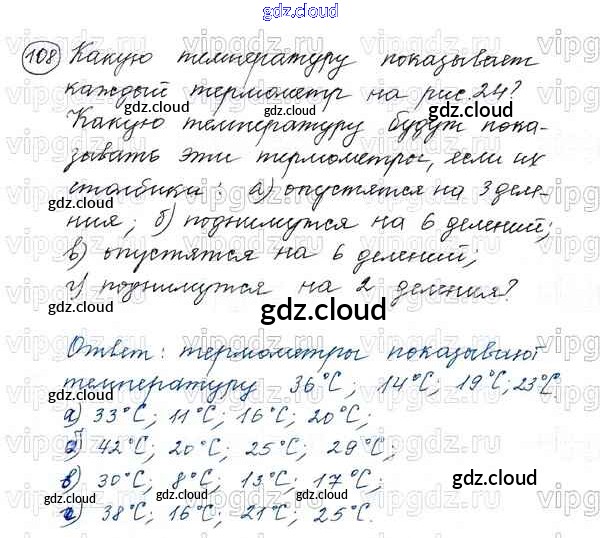 gdz.cloud
108 Какую температуру показывает
каждый термометр на рис. 24?
gdz.cloud gdz.cloud
Какую температуру будут пока-
зывать эти термометры, если их
столбики: а) опустятся на 3 деле-
gdz.cloud gdz.cloud
ния; б) поднимутся на 6 делений;
в) опустятся на 6 делений;
gdz.cloud
г) поднимутся на 2 деления?
gdz.cloud
gdz.cloud
Ответ: термометры показывают
температуру 36°С; 14°С; 19°С; 23°С.
gdz.cloud gdz.cloud
а) 33°С; 11°С; 16°С; 20°С;
б) 42°С; 20°С; 25°С; 29°С;
в) 30°С; 8°С; 13°С; 17°С;
gdz.cloud gdz.cloud
г) 38°С; 16°С; 21°С; 25°С.
gdz.cloud